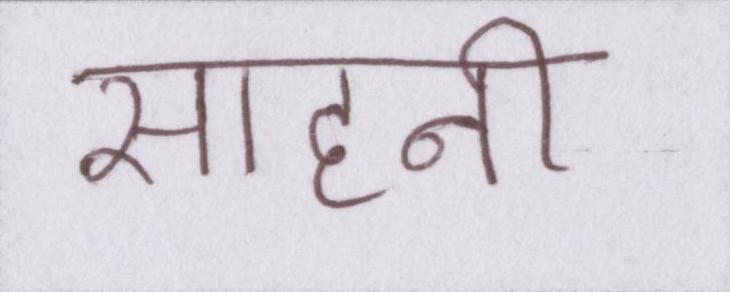 साहनी